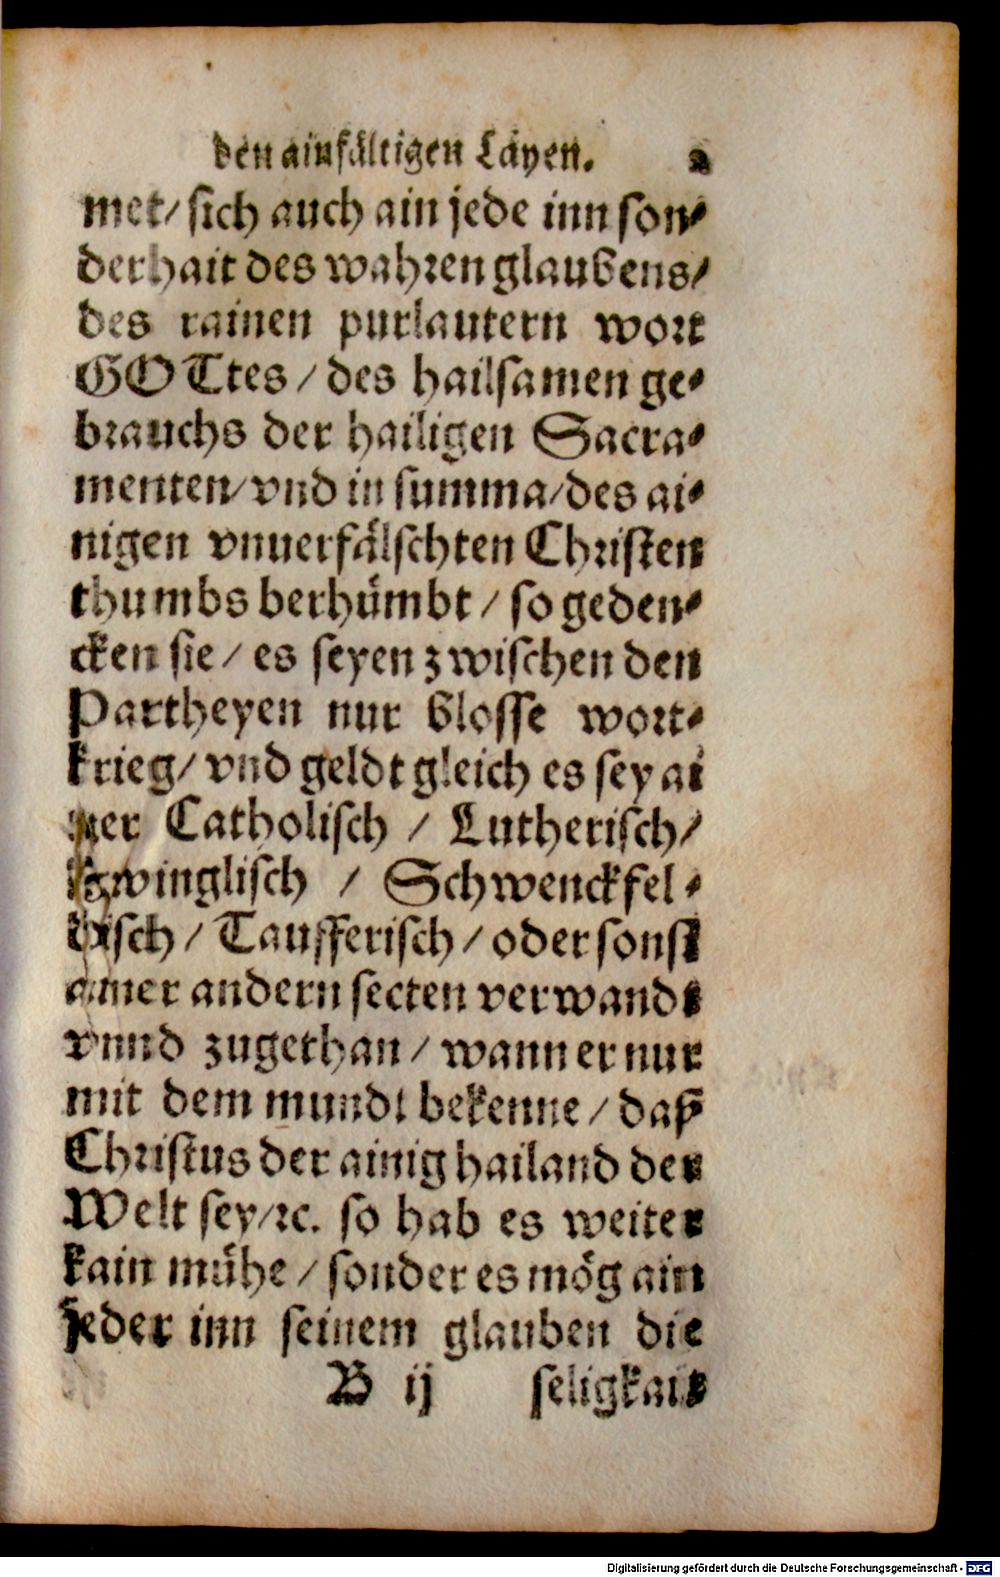 den ainfältigen Läyen. 2
met/ sich auch ain jede inn son-
derhait des wahren glaubens/
des rainen purlautern wort
GOTtes / des hailsamen ge-
brauchs der hailigen Sacra-
menten/ vnd in summa/ des ai-
nigen vnuerfälschten Christen
thumbs berhümbt / so geden-
cken sie / es seyen zwischen den
Partheyen nur blosse wort-
krieg/ vnd geldt gleich es sey ai
ner Catholisch / Lutherisch/
Zwinglisch / Schwenckfel-
disch / Taufferisch / oder sonst
ainer andern secten verwandt
vnnd zugethan / wann er nur
mit dem mundt bekenne / daß
Christus der ainig hailand der
Welt sey/ ꝛc. so hab es weiter
kain mühe / sonder es mög ain
jeder inn seinem glauben die
B ij seligkait
Digitalisierung gefördert durch die Deutsche Forschungsgemeinschaft - DFG